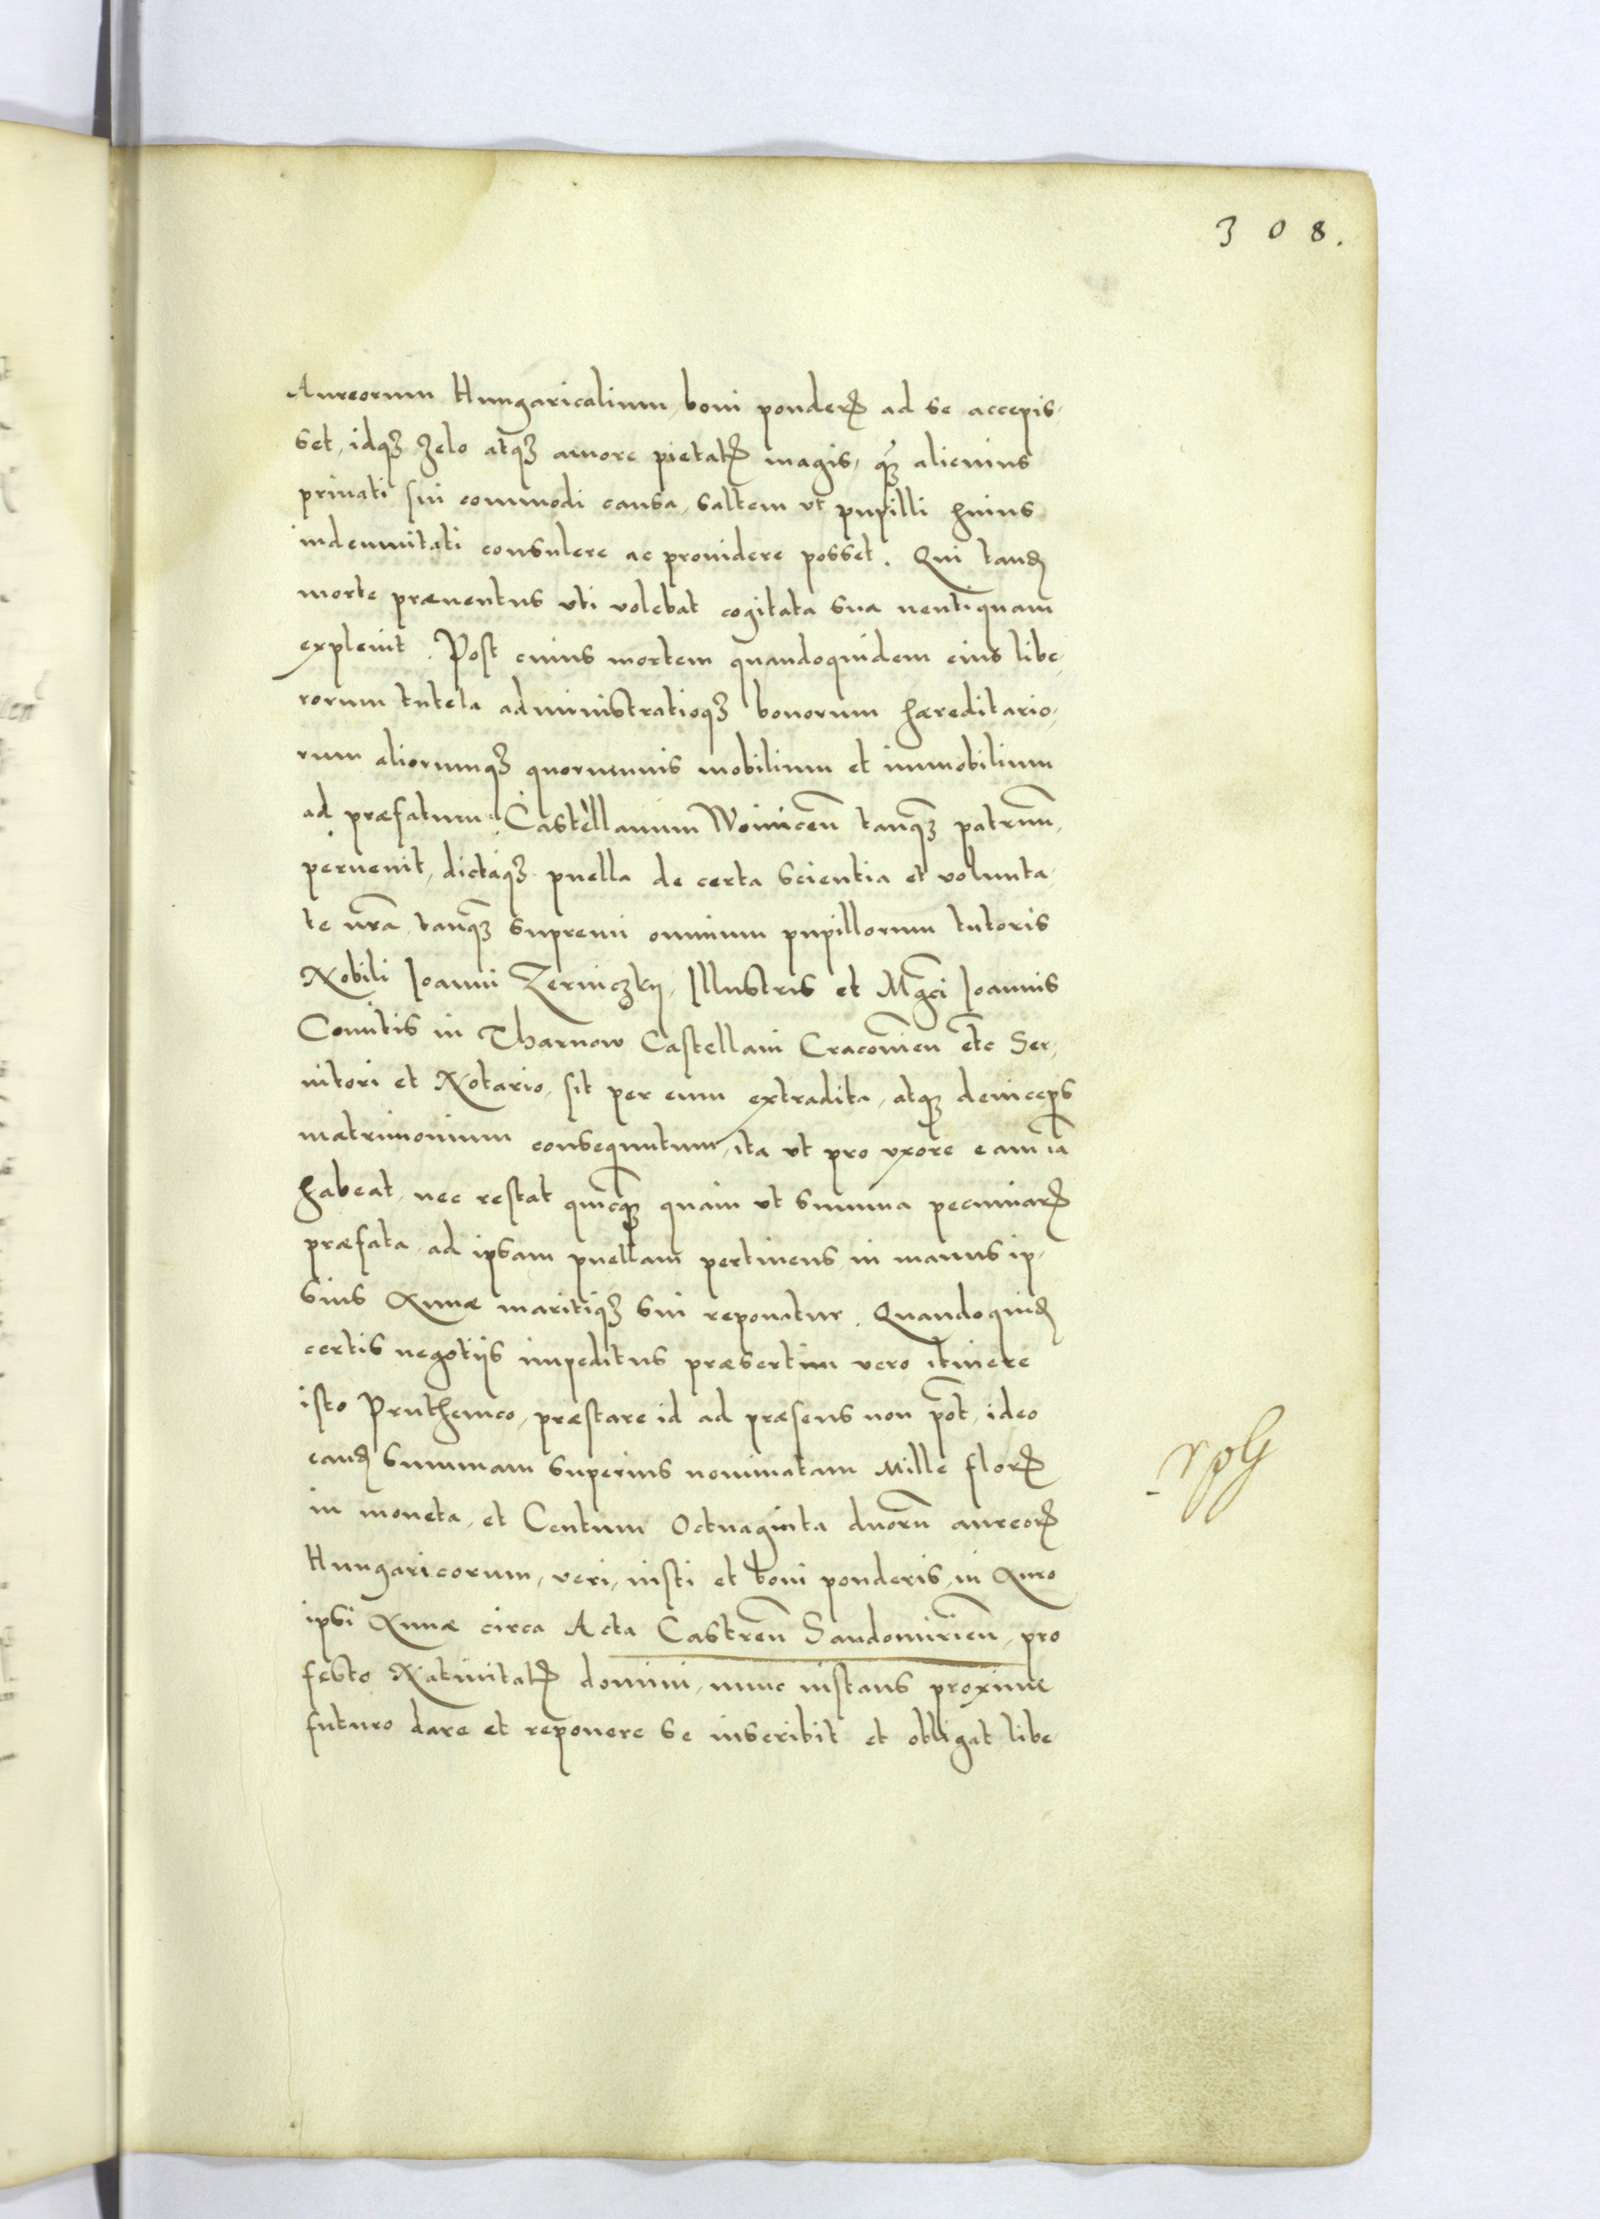 308.
Aureorum Hungaricalium, boni ponderꝭ ad se accepis,
set, idqꝫ zelo atqꝫ amore pietatꝭ magis, qꝫ alicuius
priuati sui commodi causa, saltem vt pupilli huius
indemnitati consulere ac prouidere posset. Qui tandꝫ
morte præuentus vti volebat cogitata sua neutiquam
expleuit. Post cuius mortem quandoquidem eius libe,
rorum tutela administratioqꝫ bonorum hæreditario,
rum aliorumqꝫ quorumuis mobilium et immobilium
ad præfatum Castellanum Woinicen̄ tanqꝫ patruum,
peruenit, dictaqꝫ puella de certa scientia et volunta,
te nr̄a, tanqꝫ supremi omnium pupillorum tutoris
Nobili Ioanni Zerniczky, Illustris et Mg̅ci Ioannis
Comitis in Tharnow Castellani Cracouien̄ etc̄ Ser,
uitori et Notario, sit per eum extradita, atqꝫ deinceps
matrimonium consequutum, ita vt pro vxore eam iā
habeat, nec restat quicqꝫ quam vt summa pecuniarꝭ
præfata, ad ipsam puellam pertinens in manus ip,
sius Annæ maritiqꝫ sui reponatur. Quandoquidꝫ
certis negotijs impeditus præsertim vero itinere
isto Pruthenico, præstare id ad præsens non pōt, ideo
eandꝫ summam superius nominatam Mille florꝭ
in moneta, et Centum Octuaginta duorū aureorꝭ
Hungaricorum, veri, iusti et boni ponderis, in Auro
ipsi Annæ circa Acta Castren̄ Sandomirien̄, pro
festo Natiuitatꝭ domini, nunc instans proxime
futuro dare et reponere se inscribit et obligat libe,